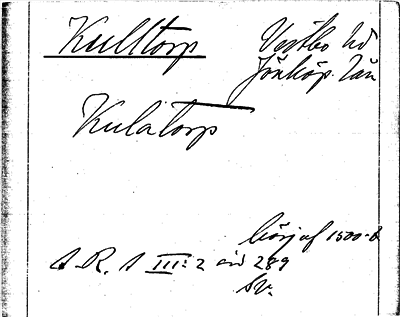 Kulltorp
Västbo hd
Jönköp. län
Kulatorp
börj af 1500-t
S. R. A III: 2 sid 289
sv.